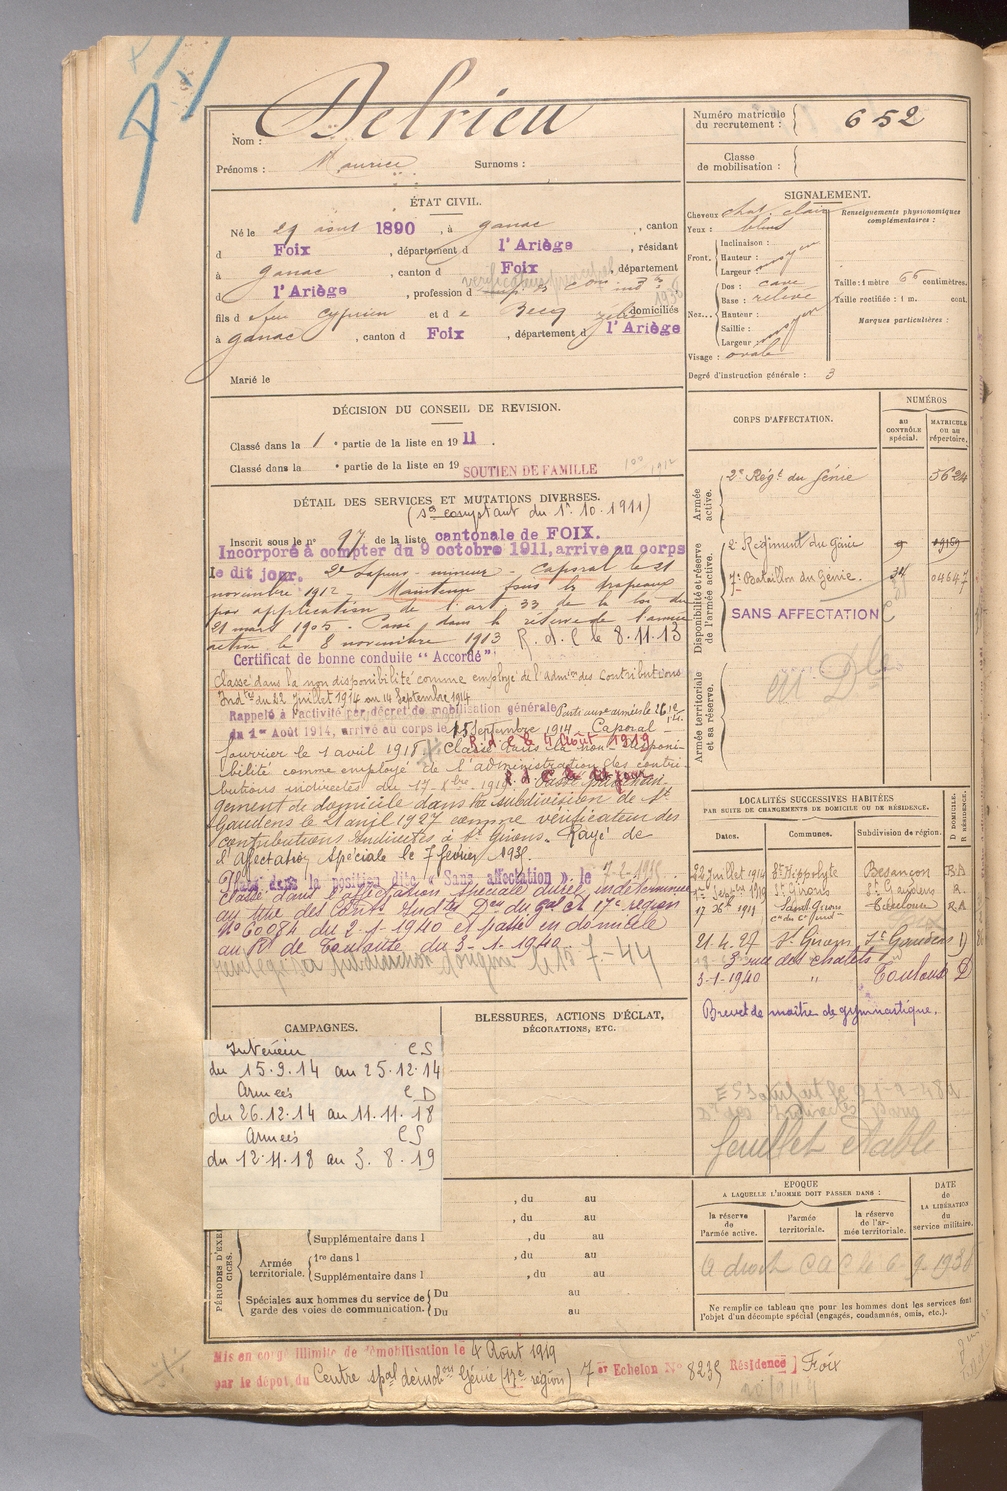 Nom : Delrieu
Prénoms : Maurice Surnoms :
Numéro matricule
du recrutement : 652
Classe
de mobilisation :
ÉTAT CIVIL.
Né le 29 août 1890, à Ganac, canton
d Foix, département d l'Ariège, résidant
à Ganac, canton d Foix, département
d l'Ariège, profession d
1936
fils d e feu Cyprien et d e Becq domiciliés
à Ganac, canton d Foix, département d l'Ariège
Marié le
SIGNALEMENT.
Cheveux chat. clair
Yeux : bleus
Front. Inclinaison :
Hauteur : moyen
Largeur :
Nez... Dos : cave
Base : relevé
Hauteur : moyen
Saillie :
Largeur :
Visage : ovale
Degré d'instruction générale : 3
Renseignements physionomiques
complémentaires :
Taille : 1 mètre 66 centimètres.
Taille rectifiée : 1 m. cent.
Marques particulières :
DÉCISION DU CONSEIL DE REVISION.
Classé dans la 1e partie de la liste en 1911.
Classé dans la e partie de la liste en 19 SOUTIEN DE FAMILLE 1912
DÉTAIL DES SERVICES ET MUTATIONS DIVERSES.
(se comptant du 1er.10.1911)
Inscrit sous le n° 97 de la liste cantonale de FOIX.
Incorporé à compter du 9 octobre 1911, arrivé au corps
le dit jour. 2e Sapeur-mineur - Caporal le 21
novembre 1912 - Maintenu sous les drapeaux
par application de l'art 33 de la loi du
21 mars 1905 - Passé dans la réserve de l'armée
active le 8 novembre 1913 R.d.C le 8.11.13
Certificat de bonne conduite "Accordé"
Classé dans la non disponibilité comme employé de l'admon des Contributions
Indtes du 22 Juillet 1914 au 14 Septembre 1914
Rappelé à l'activité par décret de mobilisation générale Parti aux armées le 26.12.14.
du 1er Août 1914, arrivé au corps le 15 Septembre 1914 Caporal -
fourrier le 1 avril 1918 R.d.C le 4 Août 1919 Classé dans la non-disponi-
bilité comme employé de l'administration des contri-
butions indirectes du 17-8bre 1919. R.d.C le dit jour
gement de domicile dans la subdivision de St
Gaudens le 21 avril 1927 comme vérificateur des
contributions Indirectes à St Girons. Rayé de
l'Affectation Spéciale le 7 février 1938.
Passé dans la position dite « Sans affectation » le 7-2-1938
Classé dans l'affectation spéciale durée indéterminée
au titre des Conts Indtes Don du Gal Ct 17e région
No 60084 du 2-1-1940 et passé en domicile
au Rt de Toulouse du 3-1-1940
le 10-7-44
CORPS D'AFFECTATION.
NUMÉROS
au
CONTRÔLE
spécial.
MATRICULE
ou au
répertoire.
Armée
active.
2e Régt du Génie 5624
Disponibilité et réserve
de l'armée active.
2e Régiment du Génie 9 19159
7e Bataillon du Génie. 34 04647
SANS AFFECTATION
Armée territoriale
et sa réserve.
LOCALITÉS SUCCESSIVES HABITÉES
PAR SUITE DE CHANGEMENTS DE DOMICILE OU DE RÉSIDENCE.
Dates. Communes. Subdivision de région. D DOMICILE. R RÉSIDENCE.
22 juillet 1914 St Hippolyte Besançon R.A
1919 St Girons St Gaudens R.
17 1919 Saint Girons Toulouse R.A
21.4.27 St Girons St Gaudens D
3 rue des chalets
3-1-1940 " Toulouse D
Brevet de maître de gymnastique.
feuillet établi
CAMPAGNES.
Intérieur CS
du 15.9.14 au 25.12.14
Armées CD
du 26.12.14 au 11.11.18
Armées CS
du 12.11.18 au 3.8.19
BLESSURES, ACTIONS D'ÉCLAT,
DÉCORATIONS, ETC.
, du au
, du au
Supplémentaire dans l , du au
PÉRIODES D'EXERCICES.
Armée
territoriale. 1re dans l , du au
Supplémentaire dans l , du au
Spéciales aux hommes du service de
garde des voies de communication. Du au
Du au
EPOQUE
A LAQUELLE L'HOMME DOIT PASSER DANS :
la réserve
de
l'armée active.
l'armée
territoriale.
la réserve
de l'ar-
mée territoriale.
DATE
de
LA LIBÉRATION
du
service militaire.
A droit CAC le 6-9-1938
Ne remplir ce tableau que pour les hommes dont les services font
l'objet d'un décompte spécial (engagés, condamnés, omis, etc.).
Mis en congé illimité de démobilisation le 4 Août 1919
par le dépôt du Centre spal démobon Génie (17e région) 7er Echelon No 8235 Résidence] Foix